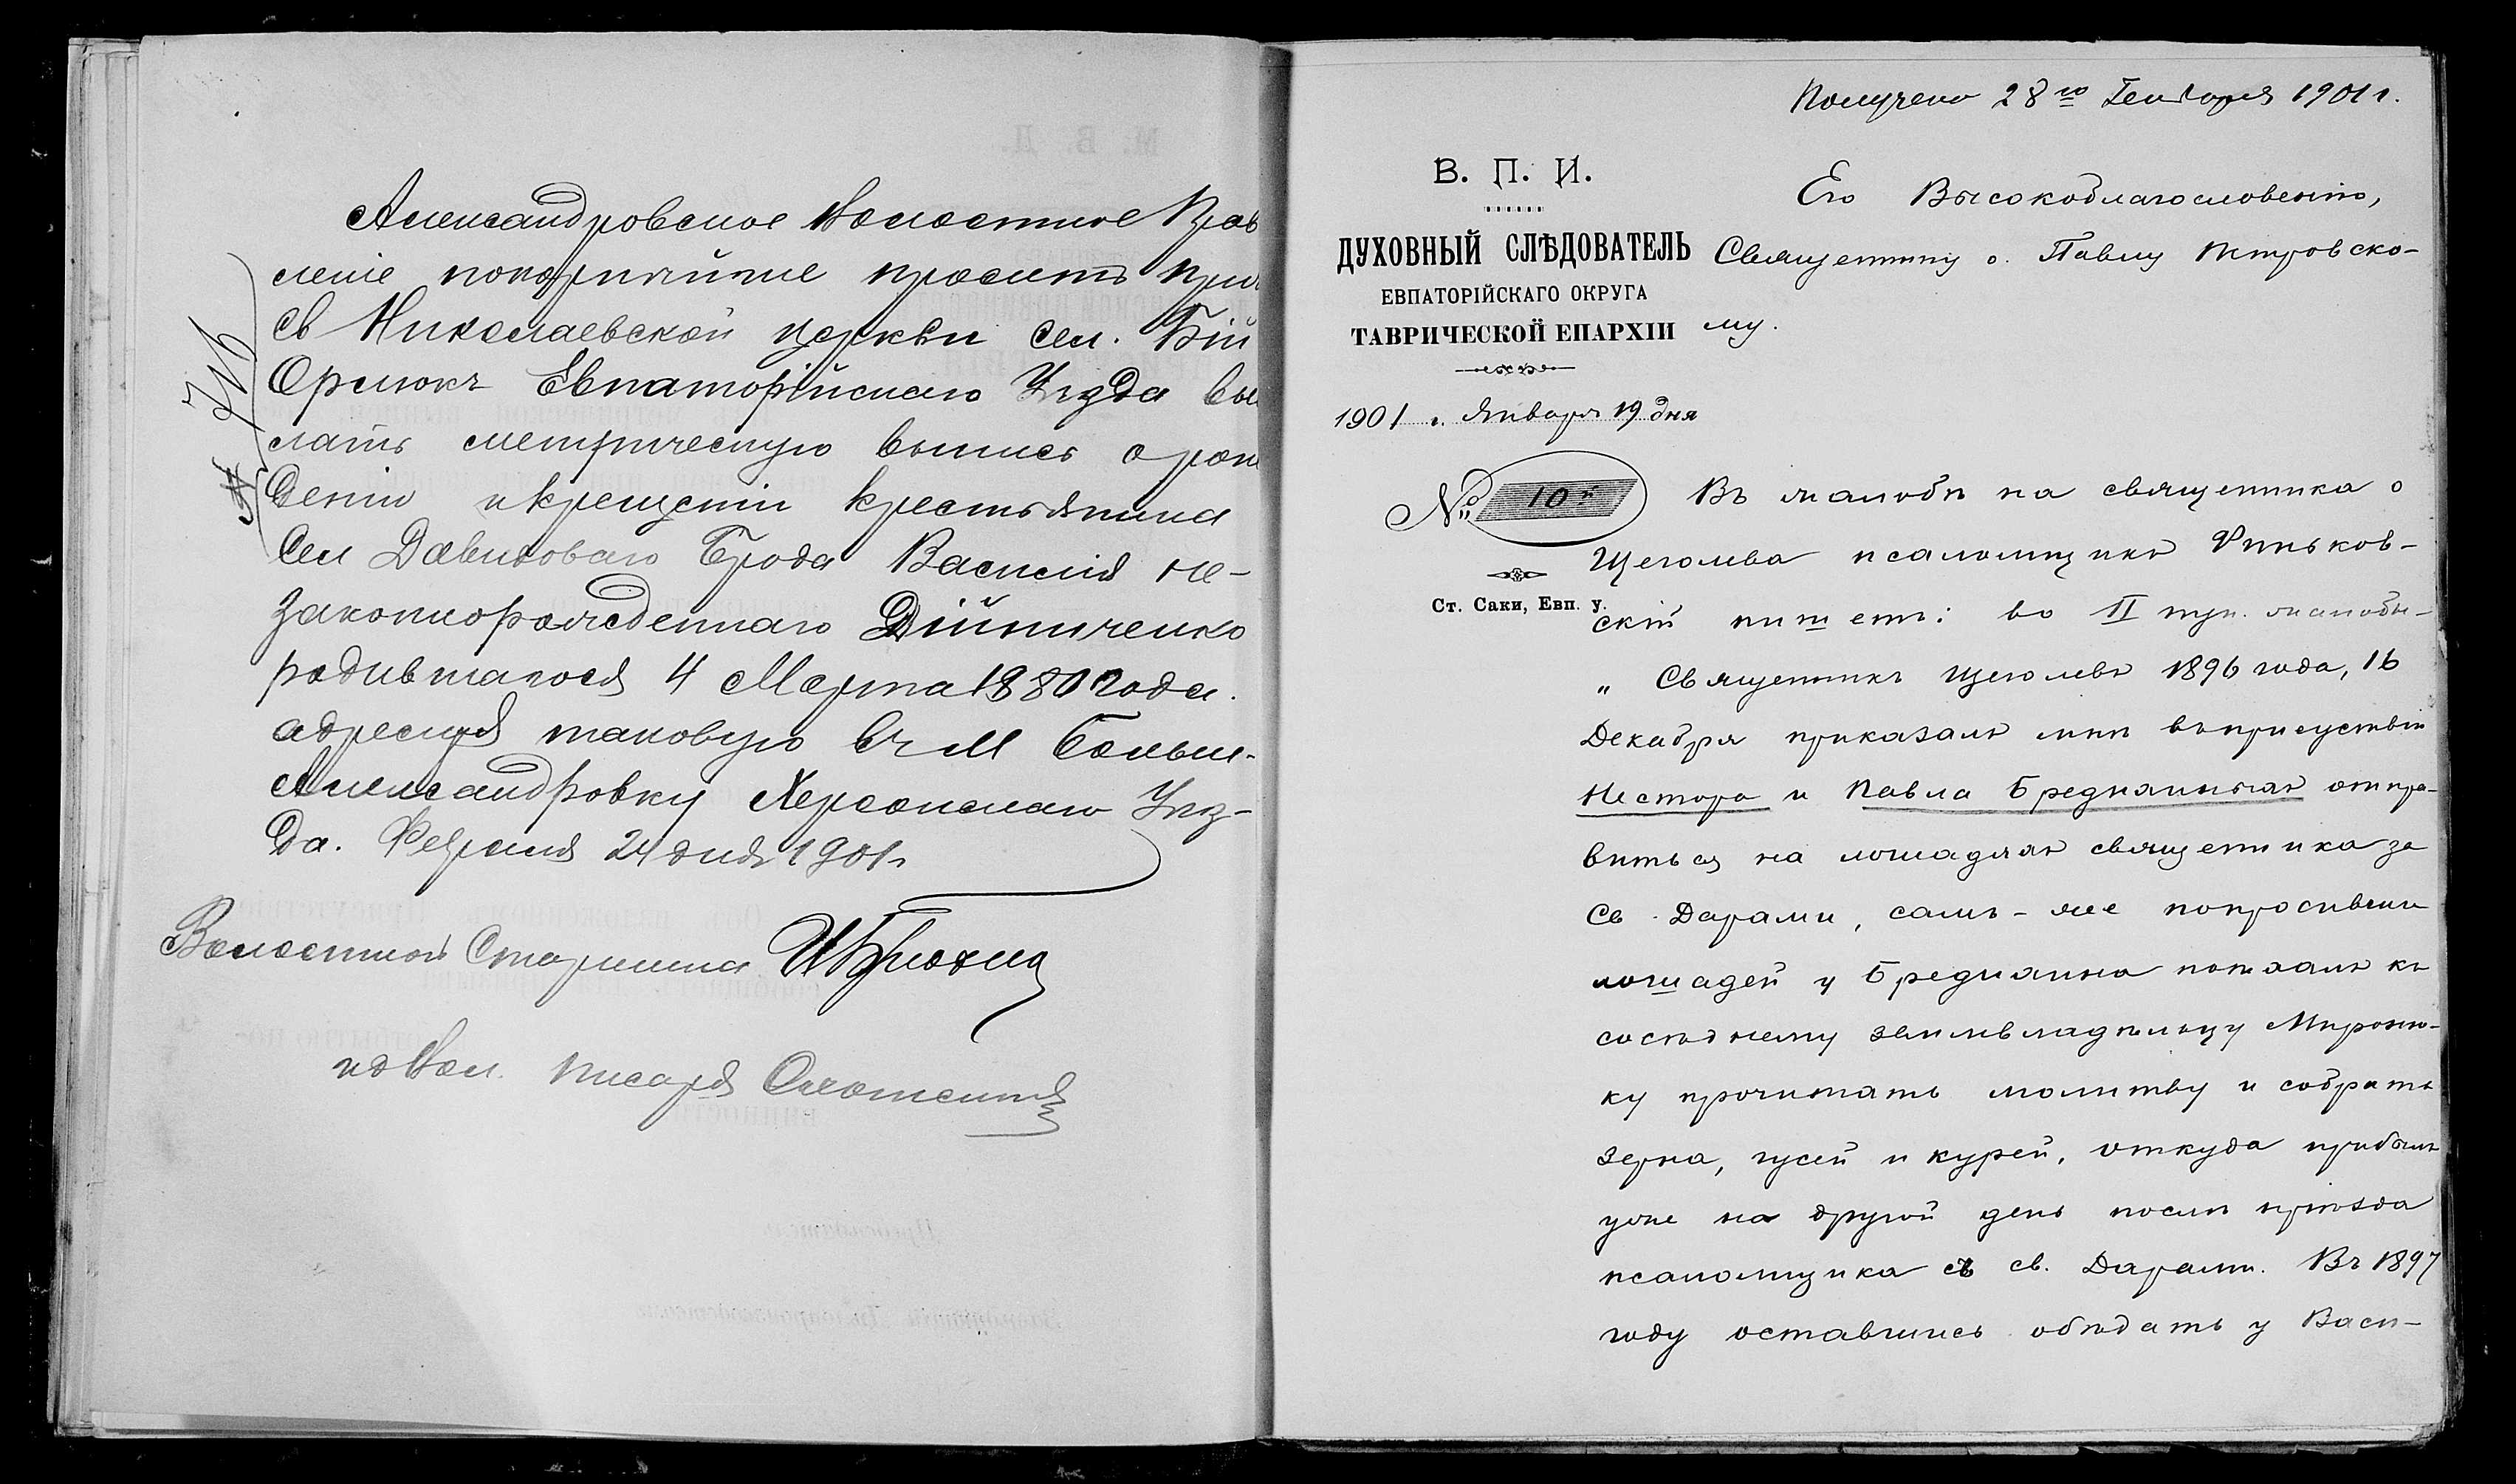 Александровское Волостное Прав
леніе покорнѣйше проситъ При
Св Николаевской церкви Сел. Бій
Орлюкъ Евпаторійскаго Уѣзда вы
слать метрическую выпись о рож
деніи и крещеніи крестьянина
Сел Давыдоваго Брода Василія не-
законнорожденнаго Дійниченко
родившагося 4 Марта 1880 года.
адресуя таковую въ М Больш.
Александровку Херсонскаго Уѣз-
да. Февраля 24 дня 1901 г
Волостной Старшина
и д Вол. писаря
Получено 28го Генваря 1901 г.
В. П. И.
ДУХОВНЫЙ СЛѢДОВАТЕЛЬ
ЕВПАТОРІЙСКАГО ОКРУГА
ТАВРИЧЕСКОЙ ЕПАРХІИ
1901 г. Января 19 дня
№ 10й
Ст. Саки, Евп. у.
Его Высокоблагословенію,
Священнику о. Павлу Петровско-
му.
Въ жалобѣ на священника о
Щеголева псаломщикъ Финьков-
скій пишетъ: во II пун. жалобы-
„ Священникъ Щеголевъ 1896 года, 16
Декабря приказалъ мнѣ въ присутствіи
Нестора и Павла Бредихиныхъ отпра-
виться на лошадяхъ священника за
Св. Дарами, самъ-же попросивши
лошадей у Бредихина поѣхалъ къ
сосѣднему землевладѣльцу Миронен-
ку прочитать молитву и собрать
зерна, гусей и курей, откуда прибылъ
уже на другой день послѣ пріѣзда
псаломщика съ св. Дарами. Въ 1897
году оставшись обѣдать у Васи-